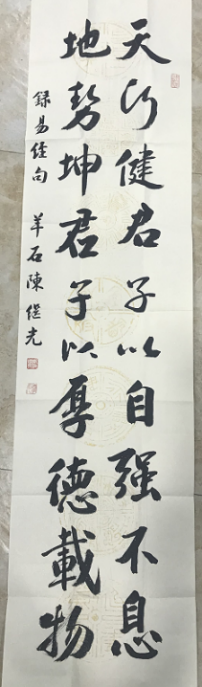 天行健君子以自强不息
地势坤君子以厚德載物
録易经句 羊石陳继光